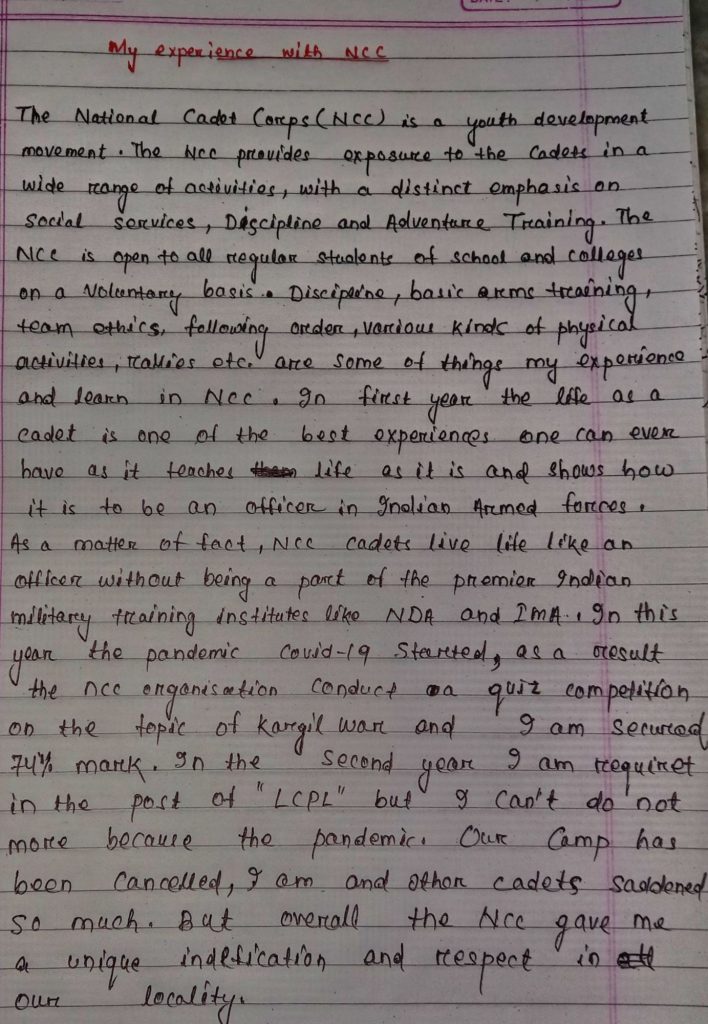 My experience with NCC
The National Cadet Corps (NCC) is a youth development
movement. The NCC provides exposure to the Cadets in a
wide range of activities, with a distinct emphasis on
Social Services, Discipline and Adventure Training. The
NCC is open to all regular students of school and colleges
on a Voluntary basis. Discipline, basic arms training,
team ethics, following order, various kinds of physical
activities, rallies etc. are some of things my experience
and learn in NCC. In first year the life as a
cadet is one of the best experiences one can ever
have as it teaches life as it is and shows how
it is to be an officer in Indian Armed forces.
As a matter of fact, NCC cadets live life like an
officer without being a part of the premier Indian
military training institutes like NDA and IMA. In this
year the pandemic Covid-19 Started, as a result
the ncc organisation conduct a quiz competition
on the topic of kargil war and I am secured
74% mark. In the second year I am requiret
in the post of "LCPL" but I can't do not
more because the pandemic. Our Camp has
been Cancelled, I am and other cadets Saddened
so much. But overall the NCC gave me
a unique indefication and respect in
our locality.